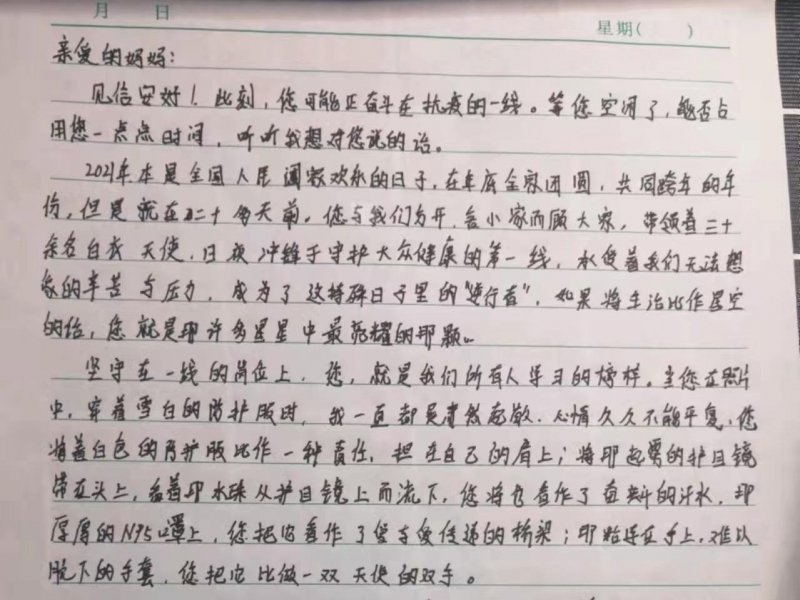 月 日
星期( )
亲爱的妈妈:
见信安好!此刻,您可能正奋斗在抗疫的一线。等您空闲了,能否占
用您一点点时间,听听我想对您说的话。
2021年本是全国人民阖家欢乐的日子,在年底全家团圆,共同跨年的年
份,但是就在二十多天前,您与我们分开,舍小家而顾大家,带领着三十
余名白衣天使,日夜冲锋于守护大众健康的第一线,承受着我们无法想
象的辛苦与压力,成为了这特殊日子里的"逆行者",如果将生活比作星空
的话,您就是那许多星星中最荣耀的那颗。
坚守在一线的岗位上,您,就是我们所有人学习的榜样。当您在照片
中,穿着雪白的防护服时,我一直都是肃然起敬,心情久久不能平复,您
将着白色的防护服比作一种责任,担在自己的肩上;将那起雾的护目镜
带在头上,看着那水珠从护目镜上而流下,您将它看作了奋斗的汗水,那
厚厚的N95口罩上,您把它看作了堡与爱传递的桥梁;那粘连在手上,难以
脱下的手套,您把它比做一双天使的双手。